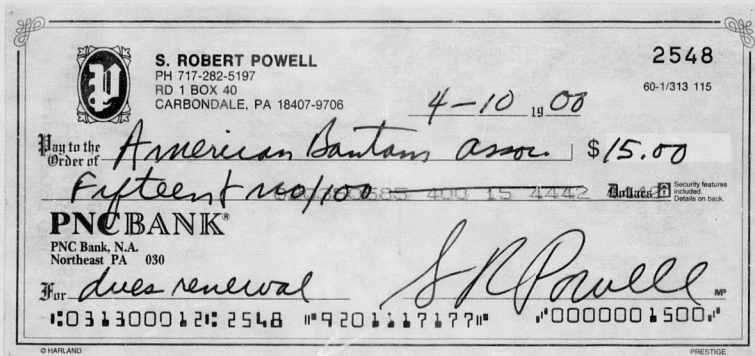 S. ROBERT POWELL 2548
PH 717-282-5197 60-1/313 115
RD 1 BOX 40
CARBONDALE, PA 18407-9706
4-10 19 00
Pay to the
Order of American Bantam assoc. $ 15.00
Fifteen & no/100 400 15 4442 Dollars Security features
included.
Details on back.
PNCBANK®
PNC Bank, N.A.
Northeast PA 030
For dues renewal S R Powell MP
⑆031300012⑆ 2548 ⑈9201117177⑈ ⑈0000001500⑈
© HARLAND PRESTIGE